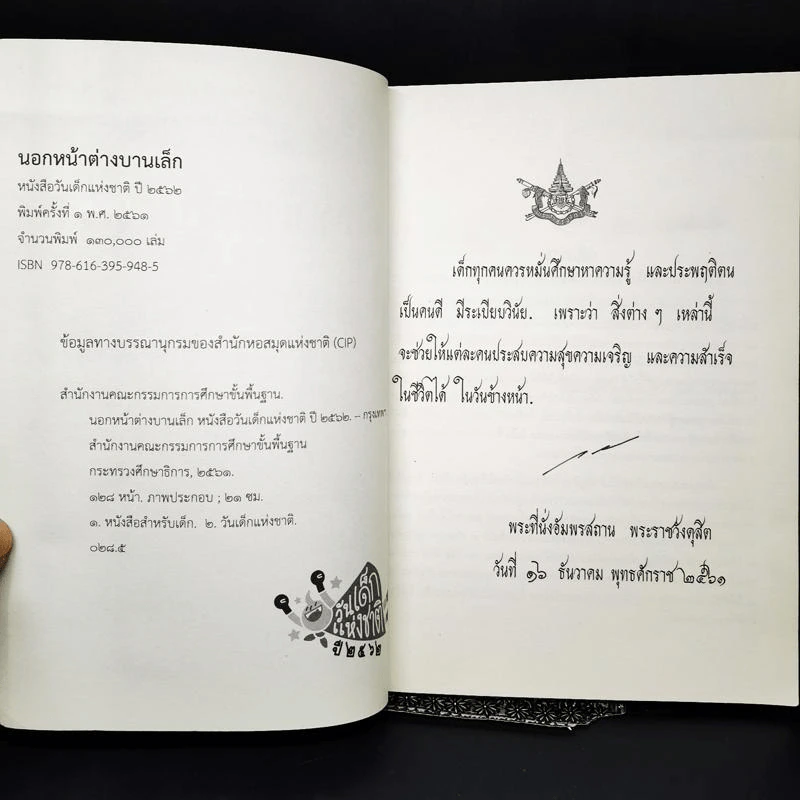 นอกหน้าต่างบานเล็ก
หนังสือวันเด็กแห่งชาติ ปี ๒๕๖๒
พิมพ์ครั้งที่ ๑ พ.ศ. ๒๕๖๑
จำนวนพิมพ์ ๑๓๐,๐๐๐ เล่ม
ISBN 978-616-395-948-5
ข้อมูลทางบรรณานุกรมของสำนักหอสมุดแห่งชาติ (CIP)
สำนักงานคณะกรรมการการศึกษาขั้นพื้นฐาน.
นอกหน้าต่างบานเล็ก หนังสือวันเด็กแห่งชาติ ปี ๒๕๖๒. – กรุงเทพฯ
สำนักงานคณะกรรมการการศึกษาขั้นพื้นฐาน
กระทรวงศึกษาธิการ, ๒๕๖๑.
๑๒๘ หน้า. ภาพประกอบ ; ๒๑ ซม.
๑. หนังสือสำหรับเด็ก. ๒. วันเด็กแห่งชาติ.
๐๒๘.๕
วันเด็ก
แห่งชาติ
ปี ๒๕๖๒
เด็กทุกคนควรหมั่นศึกษาหาความรู้ และประพฤติตน
เป็นคนดี มีระเบียบวินัย. เพราะว่า สิ่งต่าง ๆ เหล่านี้
จะช่วยให้แต่ละคนประสบความสุขความเจริญ และความสำเร็จ
ในชีวิตได้ ในวันข้างหน้า.
พระที่นั่งอัมพรสถาน พระราชวังดุสิต
วันที่ ๑๖ ธันวาคม พุทธศักราช ๒๕๖๑